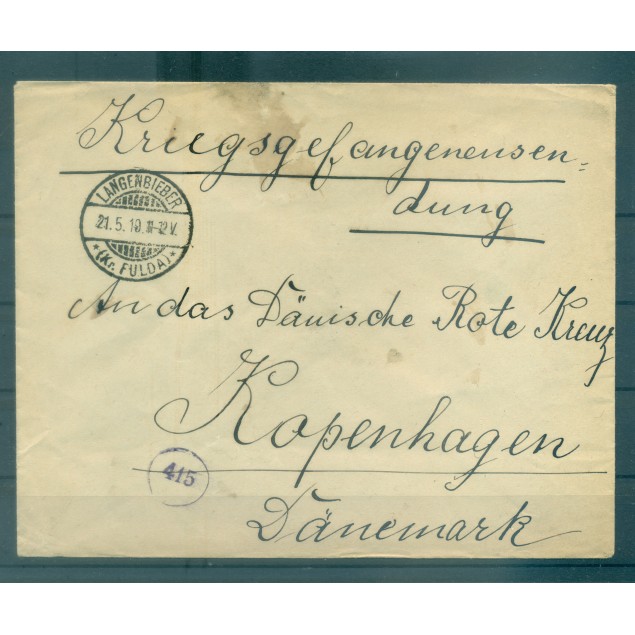 Kriegsgefangenensen=
dung
LANGENBIEBER
21.5.10.11-12 V.
*(Kr. FULDA)*
An das Dänische Rote Kreuz
Kopenhagen
415
Dänemark